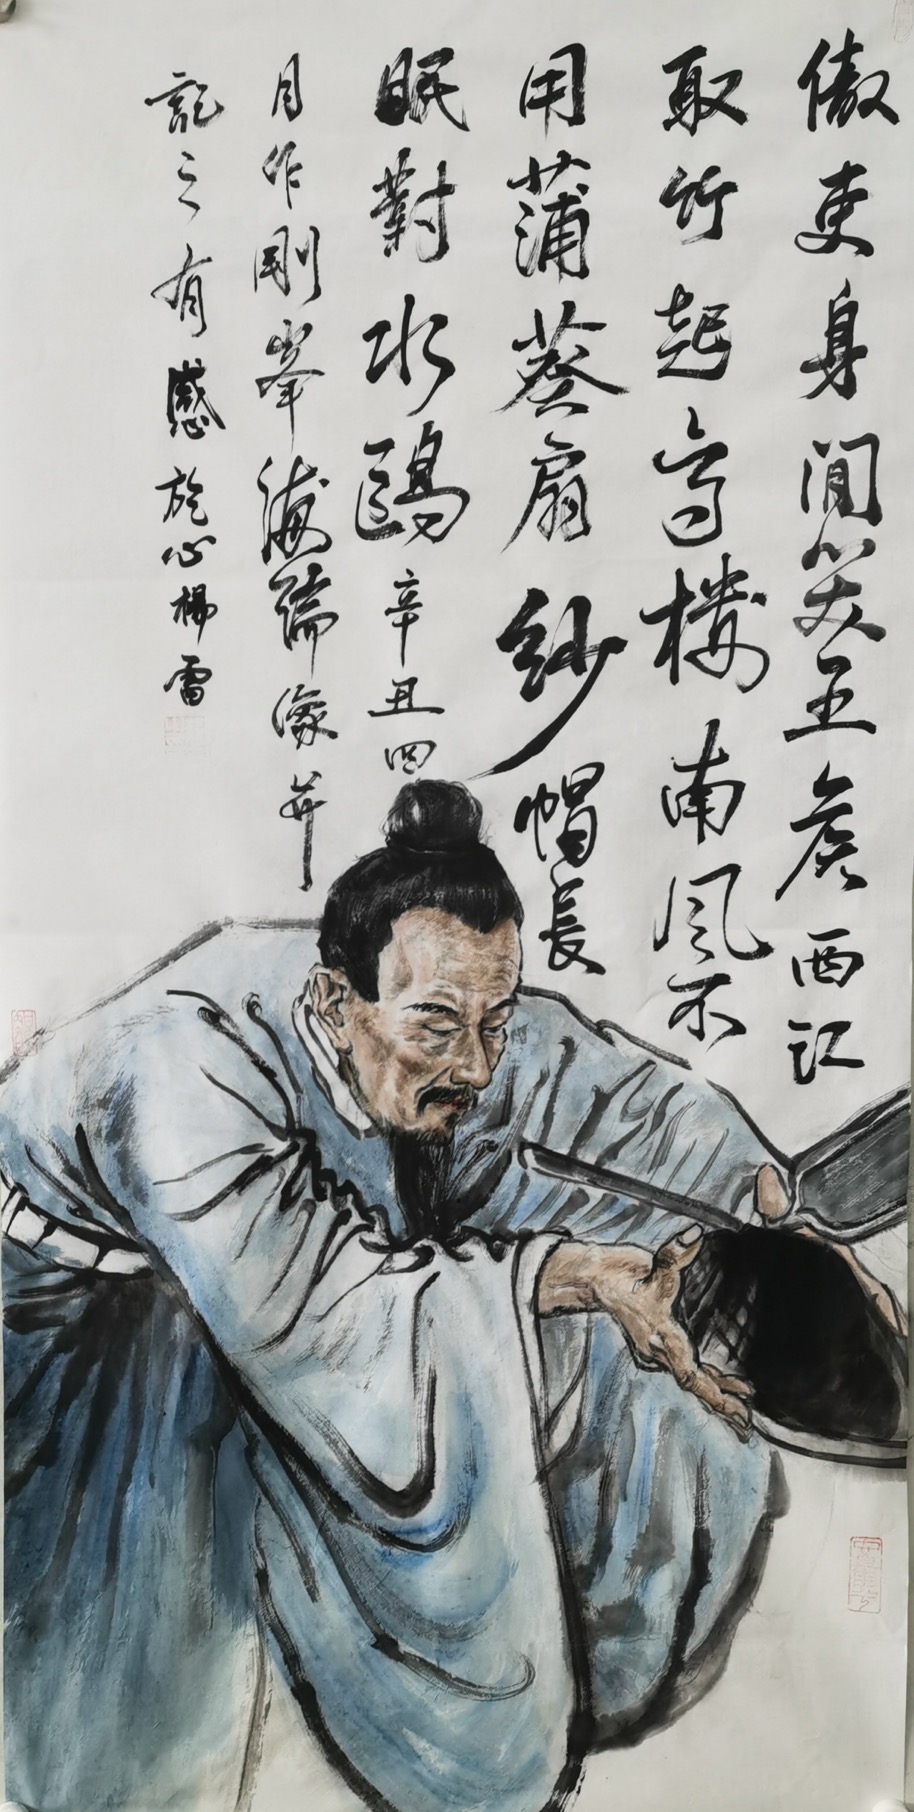 傲吏身閒笑五侯西江
取竹起高樓南风不
用蒲葵扇紗帽長
眠對水鷗辛丑四
月作剛峯海瑞像并
記之有感於心楊雷